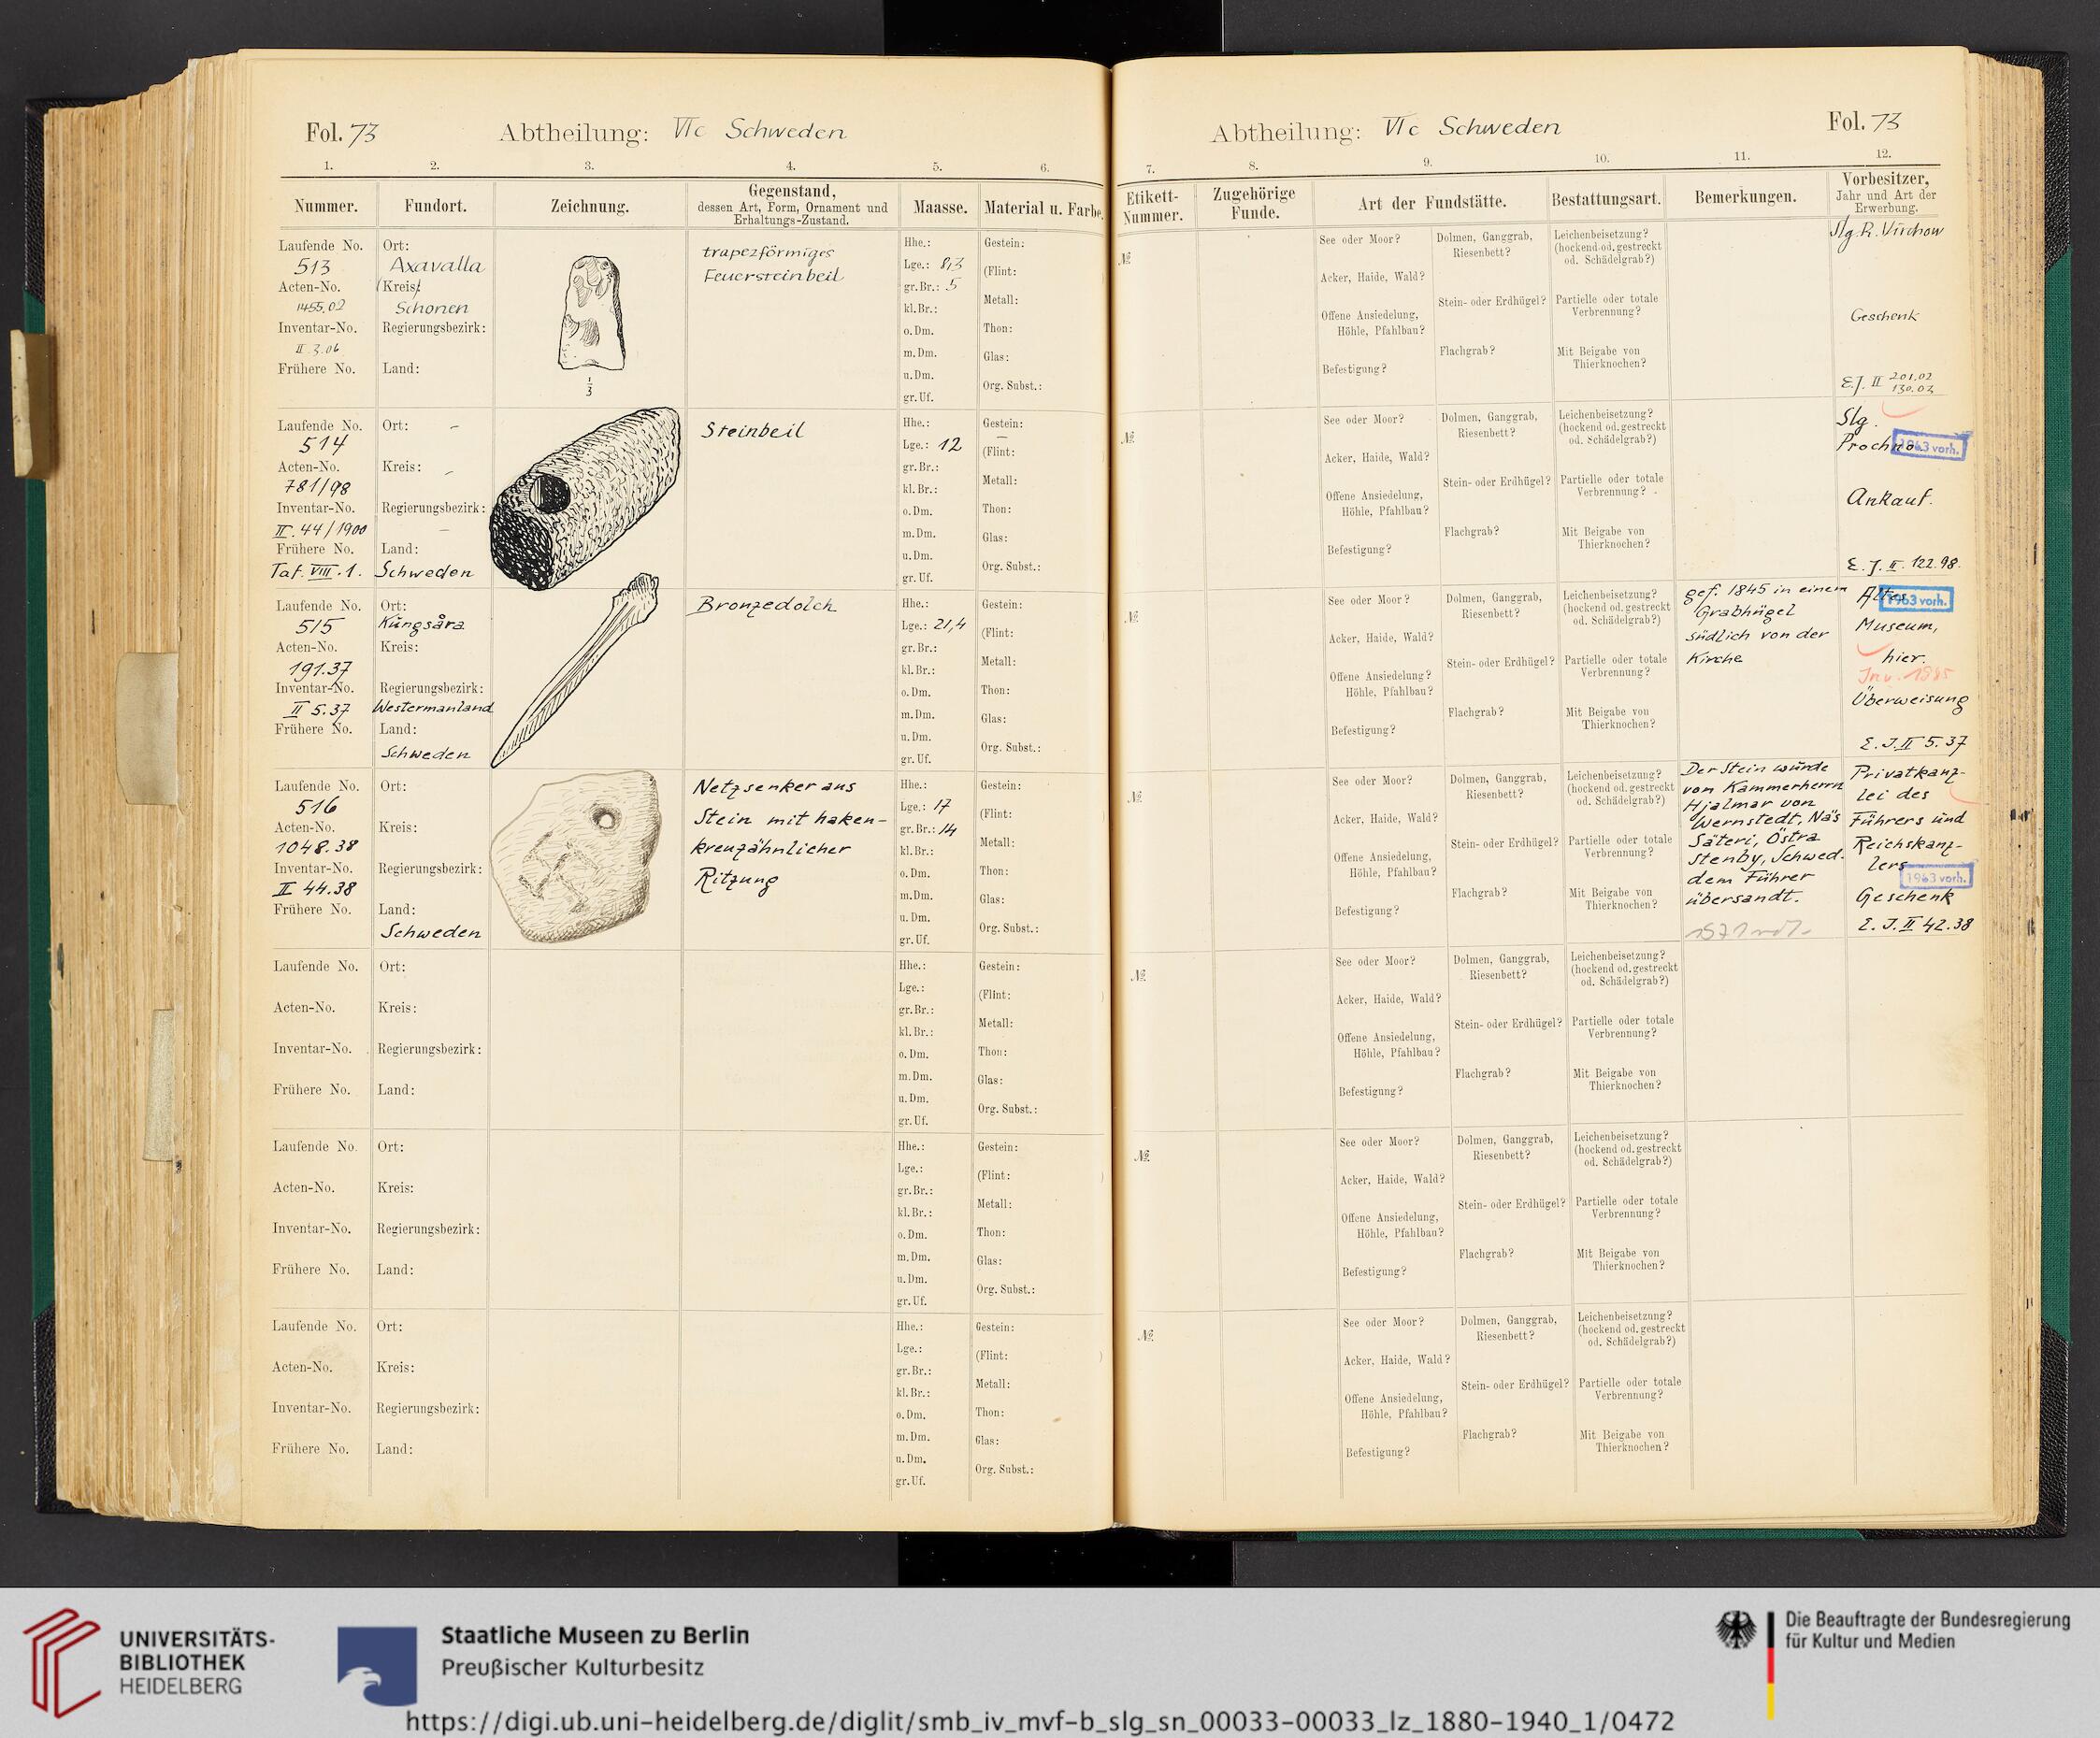 Fol. 73
Abtheilung: VIc Schweden
1. 2. 3. 4. 5. 6.
Nummer. Fundort. Zeichnung. Gegenstand, dessen Art, Form, Ornament und Erhaltungs-Zustand. Maasse. Material u. Farbe.
Laufende No.
513
Acten-No.
1455.02
Inventar-No.
II.3.06
Frühere No.
Ort:
Axavalla
(Kreis)
Schonen
Regierungsbezirk:
Land:
1/3
trapezförmiges
Feuersteinbeil
Hhe.:
Lge.: 8,3
gr. Br.: 5
kl. Br.:
o. Dm.
m. Dm.
u. Dm.
gr. Uf.
Gestein:
(Flint:
Metall:
Thon:
Glas:
Org. Subst.:
Laufende No.
514
Acten-No.
781/98
Inventar-No.
II. 44/1900
Frühere No.
Taf. VIII. 1.
Ort: –
Kreis: –
Regierungsbezirk:
–
Land:
Schweden
Steinbeil
Hhe.:
Lge.: 12
gr. Br.:
kl. Br.:
o. Dm.
m. Dm.
u. Dm.
gr. Uf.
Gestein:
–
(Flint:
Metall:
Thon:
Glas:
Org. Subst.:
Laufende No.
515
Acten-No.
191.37
Inventar-No.
II 5.37
Frühere No.
Ort:
Kungsåra
Kreis:
Regierungsbezirk:
Westermanland
Land:
Schweden
Bronzedolch
Hhe.:
Lge.: 21,4
gr. Br.:
kl. Br.:
o. Dm.
m. Dm.
u. Dm.
gr. Uf.
Gestein:
(Flint:
Metall:
Thon:
Glas:
Org. Subst.:
Laufende No.
516
Acten-No.
1048.38
Inventar-No.
II 44.38
Frühere No.
Ort:
Kreis:
Regierungsbezirk:
Land:
Schweden
Netzsenker aus
Stein mit haken-
kreuzähnlicher
Ritzung
Hhe.:
Lge.: 17
gr. Br.: 14
kl. Br.:
o. Dm.
m. Dm.
u. Dm.
gr. Uf.
Gestein:
(Flint:
Metall:
Thon:
Glas:
Org. Subst.:
Laufende No.
Acten-No.
Inventar-No.
Frühere No.
Ort:
Kreis:
Regierungsbezirk:
Land:
Hhe.:
Lge.:
gr. Br.:
kl. Br.:
o. Dm.
m. Dm.
u. Dm.
gr. Uf.
Gestein:
(Flint:
Metall:
Thon:
Glas:
Org. Subst.:
Laufende No.
Acten-No.
Inventar-No.
Frühere No.
Ort:
Kreis:
Regierungsbezirk:
Land:
Hhe.:
Lge.:
gr. Br.:
kl. Br.:
o. Dm.
m. Dm.
u. Dm.
gr. Uf.
Gestein:
(Flint:
Metall:
Thon:
Glas:
Org. Subst.:
Laufende No.
Acten-No.
Inventar-No.
Frühere No.
Ort:
Kreis:
Regierungsbezirk:
Land:
Hhe.:
Lge.:
gr. Br.:
kl. Br.:
o. Dm.
m. Dm.
u. Dm.
gr. Uf.
Gestein:
(Flint:
Metall:
Thon:
Glas:
Org. Subst.:
Abtheilung: VIc Schweden
Fol. 73
7. 8. 9. 10. 11. 12.
Etikett-Nummer. Zugehörige Funde. Art der Fundstätte. Bestattungsart. Bemerkungen. Vorbesitzer, Jahr und Art der Erwerbung.
№
See oder Moor?
Acker, Haide, Wald?
Offene Ansiedelung,
Höhle, Pfahlbau?
Befestigung?
Dolmen, Ganggrab,
Riesenbett?
Stein- oder Erdhügel?
Flachgrab?
Leichenbeisetzung?
(hockend od. gestreckt
od. Schädelgrab?)
Partielle oder totale
Verbrennung?
Mit Beigabe von
Thierknochen?
Slg. R. Virchow
Geschenk
E.J. II 201.02
130.02
№
See oder Moor?
Acker, Haide, Wald?
Offene Ansiedelung,
Höhle, Pfahlbau?
Befestigung?
Dolmen, Ganggrab,
Riesenbett?
Stein- oder Erdhügel?
Flachgrab?
Leichenbeisetzung?
(hockend od. gestreckt
od. Schädelgrab?)
Partielle oder totale
Verbrennung?
Mit Beigabe von
Thierknochen?
Slg.
Prochno
1963 vorh.
Ankauf.
E. J. II. 122.98.
№
See oder Moor?
Acker, Haide, Wald?
Offene Ansiedelung?
Höhle, Pfahlbau?
Befestigung?
Dolmen, Ganggrab,
Riesenbett?
Stein- oder Erdhügel?
Flachgrab?
Leichenbeisetzung?
(hockend od. gestreckt
od. Schädelgrab?)
Partielle oder totale
Verbrennung?
Mit Beigabe von
Thierknochen?
gef. 1845 in einem
Grabhügel
südlich von der
Kirche
Altes
1963 vorh.
Museum,
hier.
Inv. 1885
Überweisung
E. J. II 5.37
№
See oder Moor?
Acker, Haide, Wald?
Offene Ansiedelung,
Höhle, Pfahlbau?
Befestigung?
Dolmen, Ganggrab,
Riesenbett?
Stein- oder Erdhügel?
Flachgrab?
Leichenbeisetzung?
(hockend od. gestreckt
od. Schädelgrab?)
Partielle oder totale
Verbrennung?
Mit Beigabe von
Thierknochen?
Der Stein wurde
vom Kammerherrn
Hjalmar von
Wernstedt, Näs
Säteri, Östra
Stenby, Schwed.
dem Führer
übersandt.
Privatkanz-
lei des
Führers und
Reichskanz-
lers
1963 vorh.
Geschenk
E. J. II 42.38
№
See oder Moor?
Acker, Haide, Wald?
Offene Ansiedelung,
Höhle, Pfahlbau?
Befestigung?
Dolmen, Ganggrab,
Riesenbett?
Stein- oder Erdhügel?
Flachgrab?
Leichenbeisetzung?
(hockend od. gestreckt
od. Schädelgrab?)
Partielle oder totale
Verbrennung?
Mit Beigabe von
Thierknochen?
№
See oder Moor?
Acker, Haide, Wald?
Offene Ansiedelung,
Höhle, Pfahlbau?
Befestigung?
Dolmen, Ganggrab,
Riesenbett?
Stein- oder Erdhügel?
Flachgrab?
Leichenbeisetzung?
(hockend od. gestreckt
od. Schädelgrab?)
Partielle oder totale
Verbrennung?
Mit Beigabe von
Thierknochen?
№
See oder Moor?
Acker, Haide, Wald?
Offene Ansiedelung,
Höhle, Pfahlbau?
Befestigung?
Dolmen, Ganggrab,
Riesenbett?
Stein- oder Erdhügel?
Flachgrab?
Leichenbeisetzung?
(hockend od. gestreckt
od. Schädelgrab?)
Partielle oder totale
Verbrennung?
Mit Beigabe von
Thierknochen?
UNIVERSITÄTS-
BIBLIOTHEK
HEIDELBERG
Staatliche Museen zu Berlin
Preußischer Kulturbesitz
Die Beauftragte der Bundesregierung
für Kultur und Medien
https://digi.ub.uni-heidelberg.de/diglit/smb_iv_mvf-b_slg_sn_00033-00033_lz_1880-1940_1/0472